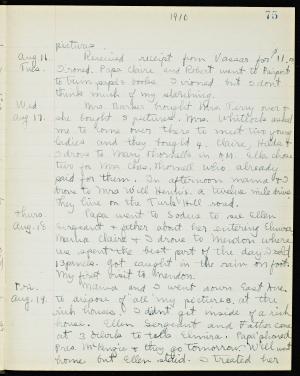 1910 75
pictures.
Aug 16. Received receipt from Vassar for $11.00
Tues. I ironed. Papa Claire and Robert went to Fairport
to turn papa's books. I ironed but I don't
think much of my starching.
Wed. Mrs. Barker brought Mrs. Terry over &
Aug 17. she bought 3 pictures. Mrs. Whitlock asked
me to come over there to meet two young
ladies and they bought 4. Claire, Hilda &
I drove to Mary Thornell's in A.M. Ella chose
two for Mrs. Chas. Thornell who already
paid for them. In afternoon mama & I
drove to Mrs Will a twelve mile drive
They live on the Turk Hill road.
Thurs. Papa went to Sodus to see Ellen
Aug. 18. Sergeant & father about her entering Elmira
Mama Claire & I drove to Mendon where
we spent the best part of the day. I sold
13 panels. Got caught in the rain on foot.
My first visit to Mendon.
Fri. Mama and I went down East Ave.
Aug. 19. to dispose of all my pictures, at the
rich houses. I didn't get inside of a rich
house. Ellen Sergeant and Father came
at 3 o'clock to talk Elmira. Papa phoned
Pres. McKenzie & they go tomorrow. Will went
home but Ellen staid. I treated her